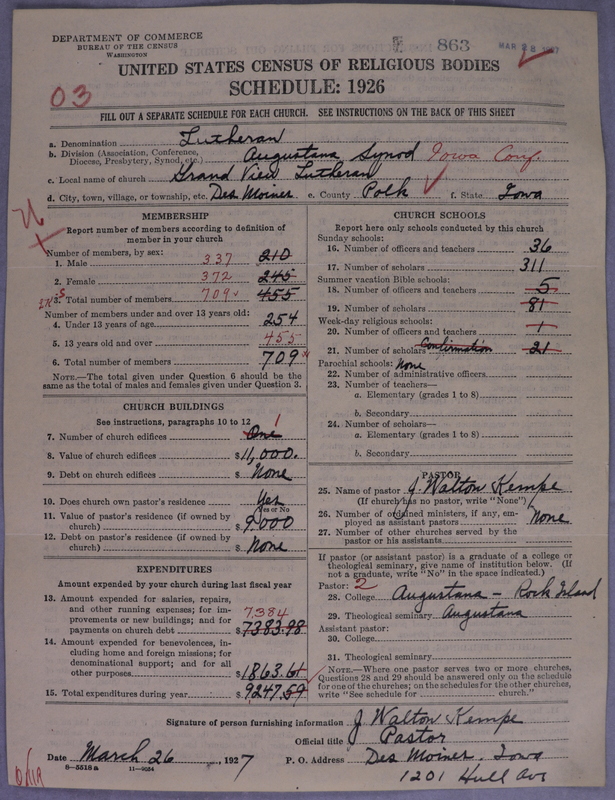 DEPARTMENT OF COMMERCE
BUREAU OF THE CENSUS
WASHINGTON
863
MAR 28 1927
UNITED STATES CENSUS OF RELIGIOUS BODIES
SCHEDULE: 1926
03
FILL OUT A SEPARATE SCHEDULE FOR EACH CHURCH. SEE INSTRUCTIONS ON THE BACK OF THIS SHEET
a. Denomination Lutheran
b. Division (Association, Conference, Diocese, Presbytery, Synod, etc.) Augustana Synod Iowa Conf.
c. Local name of church Grand View Lutheran
d. City, town, village, or township, etc. Des Moines e. County Polk f. State Iowa
MEMBERSHIP
Report number of members according to definition of
member in your church
Number of members, by sex:
1. Male 337 210
2. Female 372 245
3. Total number of members 709 455
Number of members under and over 13 years old:
4. Under 13 years of age 254
5. 13 years old and over 455
6. Total number of members 709
NOTE.—The total given under Question 6 should be
same as the total of males and females given under Question 3.
CHURCH BUILDINGS
See instructions, paragraphs 10 to 12
7. Number of church edifices One 1
8. Value of church edifices $ 11,000.
9. Debt on church edifices $ None
10. Does church own pastor's residence Yes
Yes or No
11. Value of pastor's residence (if owned by
church) $ 9000
12. Debt on pastor's residence (if owned by
church) $ None
EXPENDITURES
Amount expended by your church during last fiscal year
13. Amount expended for salaries, repairs,
and other running expenses; for im-
provements or new buildings; and for 7,384
payments on church debt $ 7383.98
14. Amount expended for benevolences, in-
cluding home and foreign missions; for
denominational support; and for all
other purposes $ 1863.61
15. Total expenditures during year $ 9247.59
CHURCH SCHOOLS
Report here only schools conducted by this church
Sunday schools:
16. Number of officers and teachers 36
17. Number of scholars 311
Summer vacation Bible schools:
18. Number of officers and teachers 5
19. Number of scholars 81
Week-day religious schools:
20. Number of officers and teachers 1
21. Number of scholars Confirmation 21
Parochial schools: None
22. Number of administrative officers
23. Number of teachers—
a. Elementary (grades 1 to 8)
b. Secondary
24. Number of scholars—
a. Elementary (grades 1 to 8)
b. Secondary
PASTOR
25. Name of pastor J. Walton Kempe
(If church has no pastor, write "None")
26. Number of ordained ministers, if any, em-
ployed as assistant pastors None
27. Number of other churches served by the
pastor or his assistants
If pastor (or assistant pastor) is a graduate of a college or
theological seminary, give name of institution below. (If
not a graduate, write "No" in the space indicated.)
Pastor: 2
28. College Augustana - Rock Island
29. Theological seminary Augustana
Assistant pastor:
30. College
31. Theological seminary
NOTE.—Where one pastor serves two or more churches,
Questions 28 and 29 should be answered only on the schedule
for one of the churches; on the schedules for the other churches,
write "See schedule for church."
Signature of person furnishing information J Walton Kempe
Official title Pastor
Date March 26, 1927 P. O. Address Des Moines, Iowa
8—5516a 11—9054
1201 Hull Ave